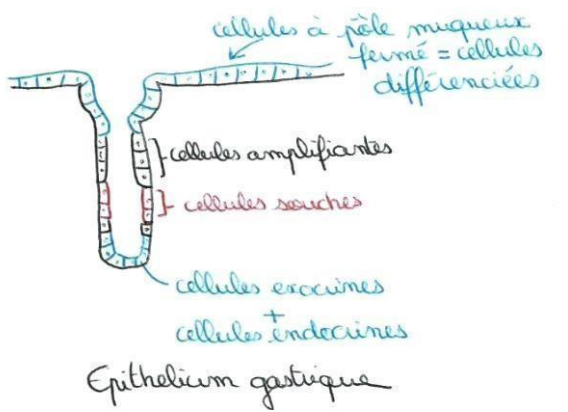 cellules à pôle muqueux
fermé = cellules
différenciées
cellules amplifiantes
cellules souches
cellules exocrines
+
cellules endocrines
Epithelium gastrique